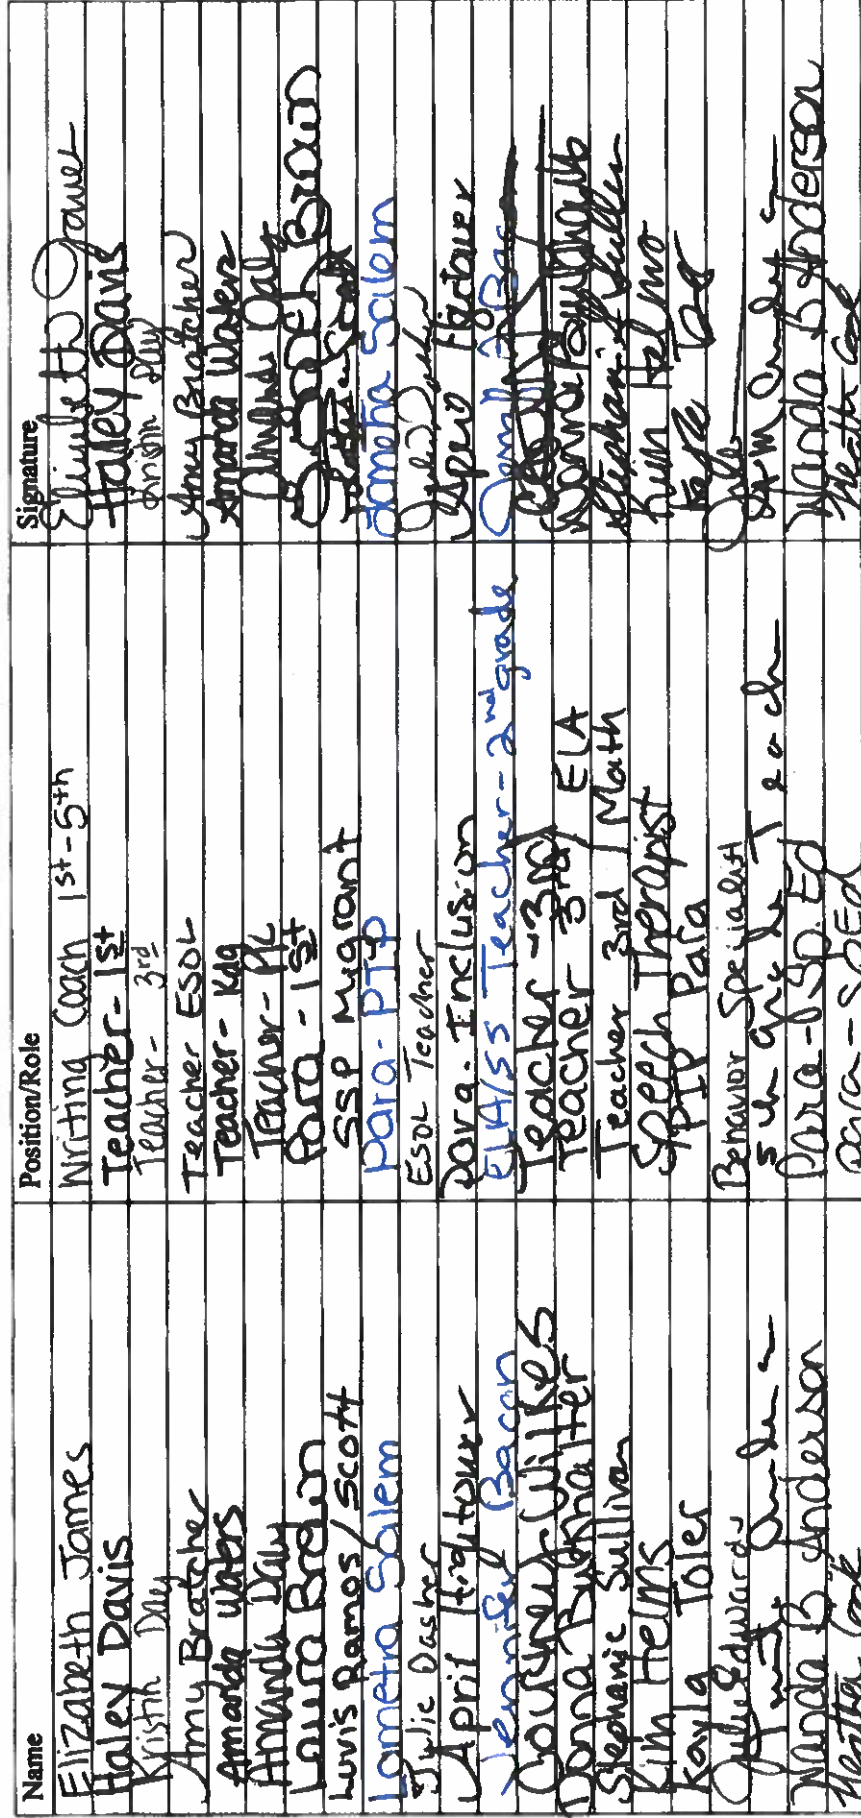 Name Position/Role Signature
Elizabeth James Writing Coach 1st-5th Elizabeth James
Haley Davis Teacher-1st Haley Davis
Kristin Day Teacher-3rd Kristin Day
Amy Bratcher Teacher ESOL Amy Bratcher
Amanda Waters Teacher-Kdg Amanda Waters
Amanda Daly Teacher- Amanda Daly
Laura Brown Para-1st Brown
Luvis Ramos/Scott SSP Migrant
Lametra Salem Para-PIP Lametra Salem
Julie Dasher ESOL Teacher Julie Dasher
April Hightower Para-Inclusion April Hightower
Jennifer Bacon ELA/SS Teacher-2nd grade
Courtney Wilkes Teacher-3rd
Donna Teacher 3rd/ELA Donna
Stephanie Sullivan Teacher 3rd/Math Stephanie Sullivan
Kim Helms Speech Therapist Kim Helms
Kayla Toler PIP Para
Julie Edwards Behavior Specialist
5th grade Teach
Wanda B Anderson Para-Sp Ed Wanda B Anderson
Heather Para-SpEd Heather